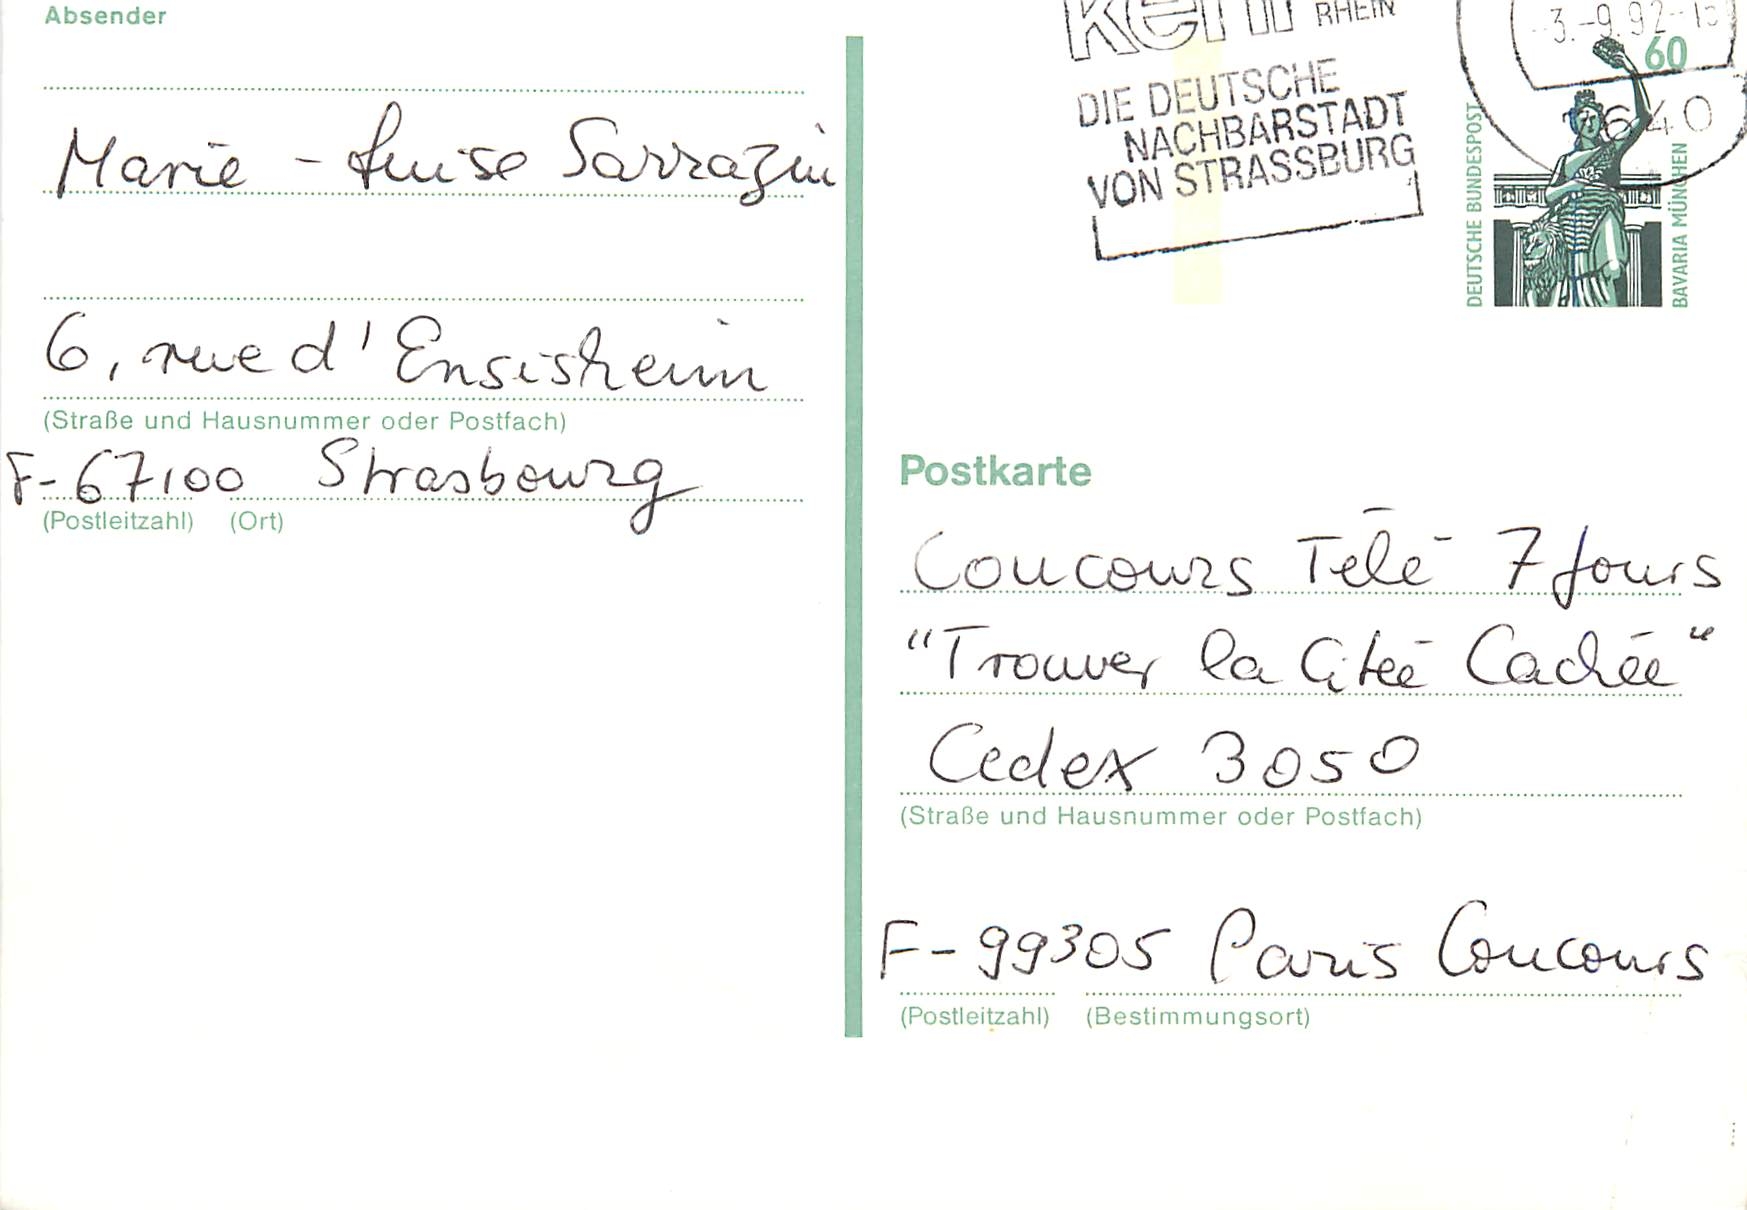 Absender
Marie - Luise Sarrazin
6, rue d' Ensisheim
(Straße und Hausnummer oder Postfach)
F-67100 Strasbourg
(Postleitzahl) (Ort)
kehl RHEIN
DIE DEUTSCHE
NACHBARSTADT
VON STRASSBURG
-3.-9.92-15
60
7640
DEUTSCHE BUNDESPOST
BAVARIA MÜNCHEN
Postkarte
Concours Télé 7 Jours
"Trouver la Citeé Cachée"
Cedex 3050
(Straße und Hausnummer oder Postfach)
F-99305 Paris Concours
(Postleitzahl) (Bestimmungsort)